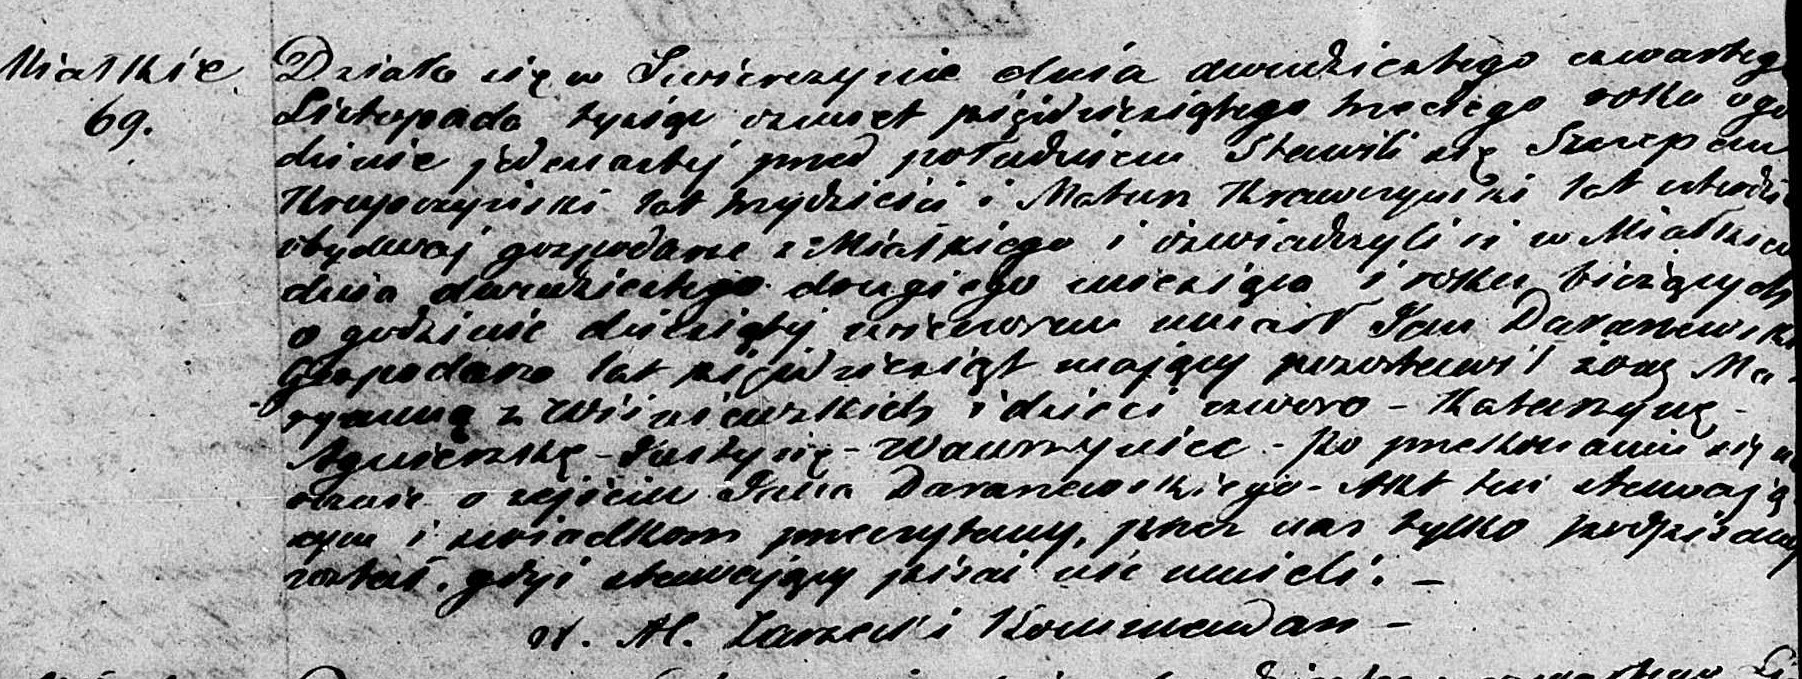 Miałkie
69.
Działo się w Swierczynie dnia dwudziestego czwartego
Listopada tysiąc osmset pięćdziesiątego trzeciego roku o go
dzinie jedenastej przed południem Stawili się Szczepan
Krupczyński lat trzydzieści i Matusz Krawczyński lat
obydwaj gospodarze z Miałkiego i oswiadczyli iż w Miałkiem
dnia dwudziestego drugiego miesiąca i roku bieżących
o godzinie dziesiątej wieczorem umarł Jan Daranowski
Gospodarz lat pięćdziesiąt mający pozostawił żonę Ma-
ryannę z Wiśniewskich i dzieci czworo - Katarzynę -
Agnieszkę - Justynę - Wawrzyniec - Po przekonaniu się
o zejściu Jana Daranowskiego - Akt ten stawają
cym i swiadkom przeczytany, przez nas tylko podpisany
został, gdyż stawający pisać nie umieli. -
Kommendarz -